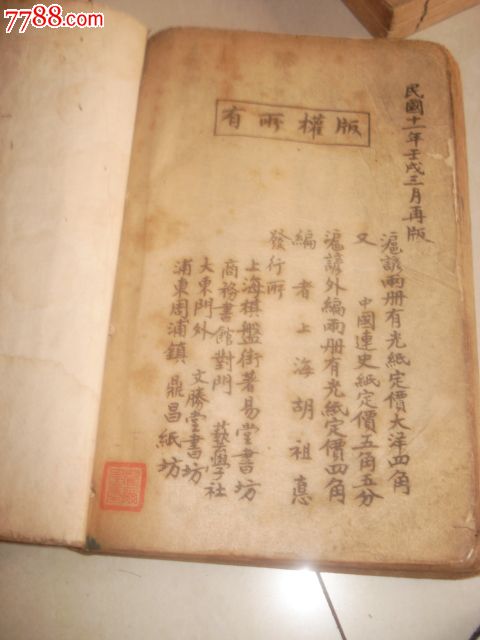 7788.com
中国收藏热线
版權所有
民國十一年壬戌三月再版
滬諺兩册有光紙定價大洋四角
又 中國連史紙定價五角五分
滬諺外編兩册有光紙定價四角
編者上海胡祖悳
發行所
上海棋盤街著易堂書坊
商務書館對門 藝學社
大東門外 文勝堂書坊
浦東周浦鎮 鼎昌紙坊